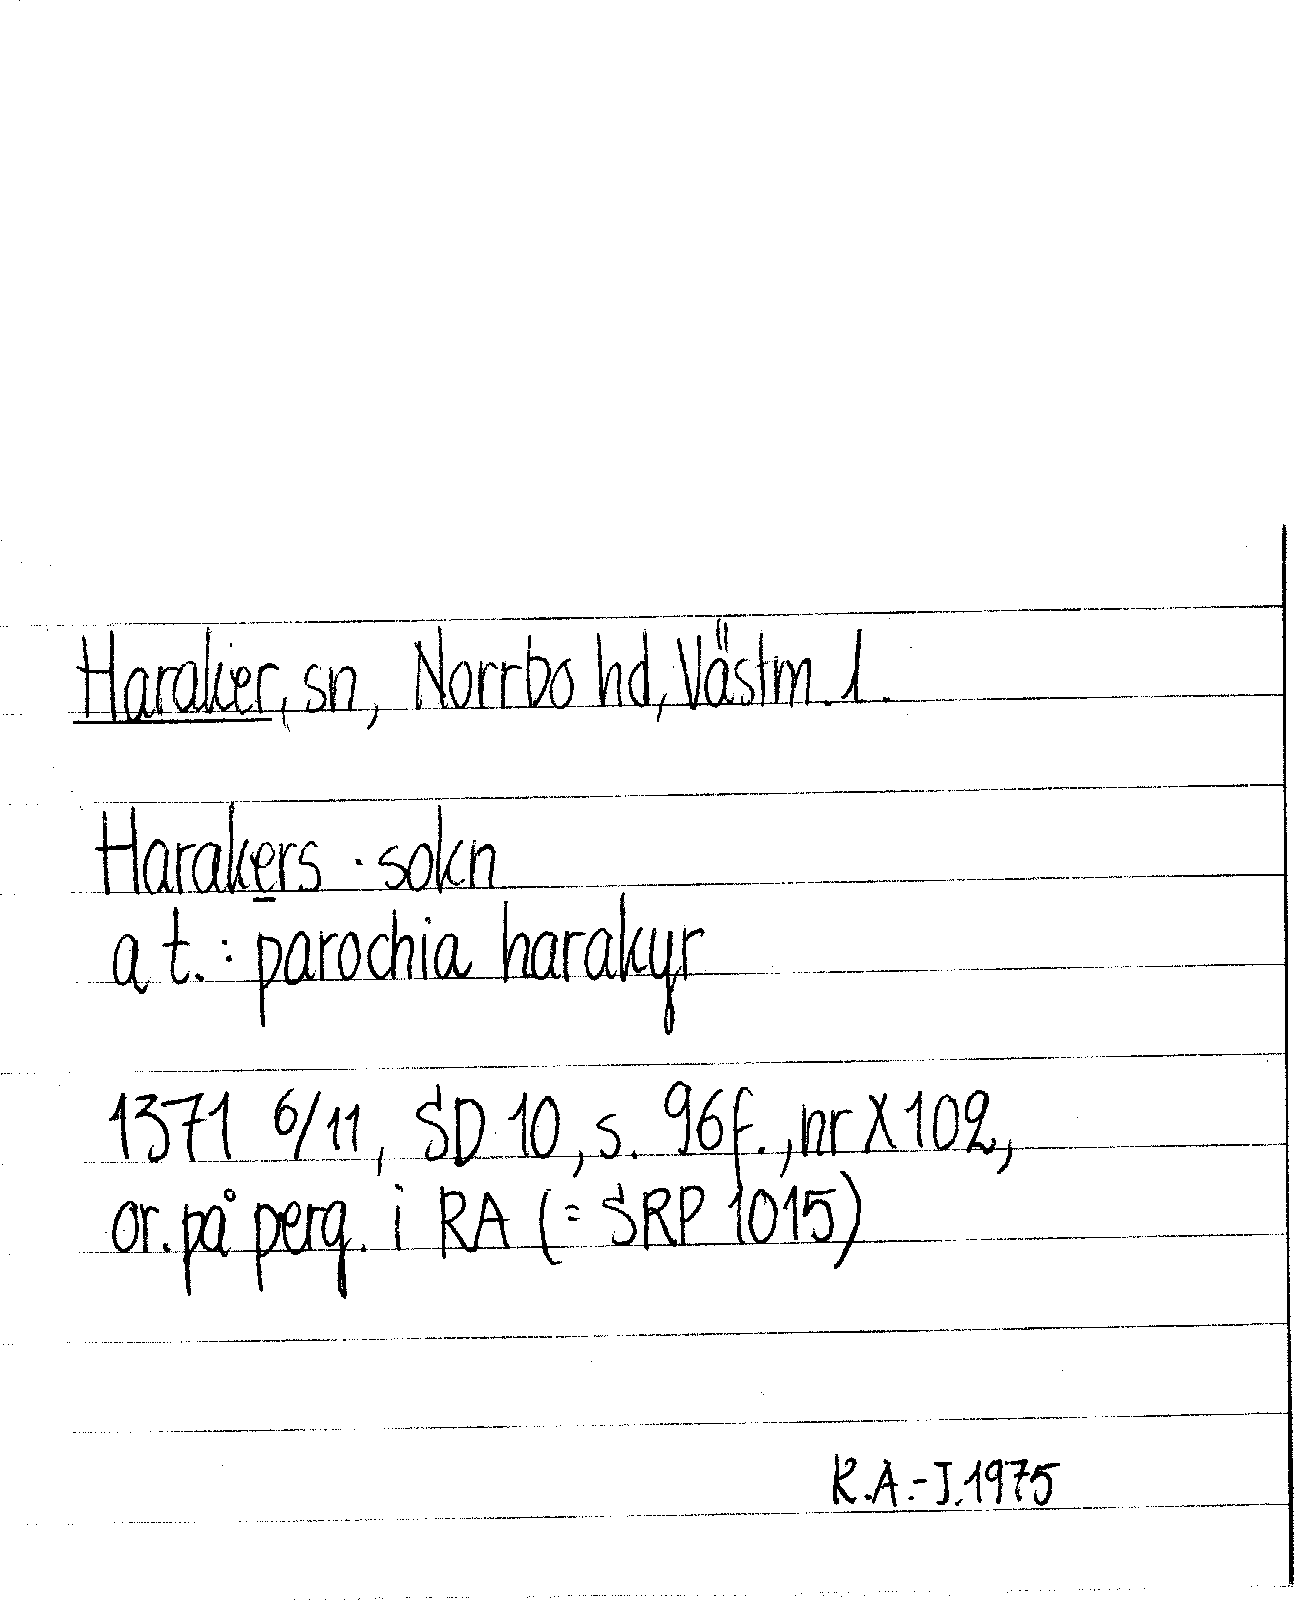 Haraker, sn, Norrbo hd, Västm. l.
Harakers · sokn
a t.: parochia harakyr
1371 6/11, SD 10, s. 96 f., nr X 102,
or. på perg. i RA (= SRP 1015)
K.A.-J. 1975